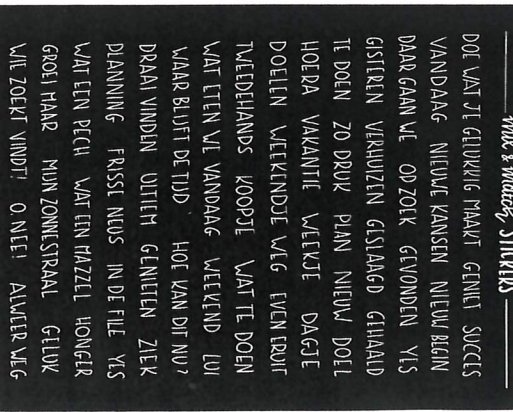 Mix & Match STICKERS
DOE WAT JE GELUKKIG MAAKT GENIET SUCCES
VANDAAG NIEUWE KANSEN NIEUW BEGIN
DAAR GAAN WE OP ZOEK GEVONDEN YES
GISTEREN VERHUIZEN GESLAAGD GEHAALD
TE DOEN ZO DRUK PLAN NIEUW DOEL
HOERA VAKANTIE WEEKJE DAGJE
DOELEN WEEKENDJE WEG EVEN ERUIT
TWEEDEHANDS KOOPJE WAT TE DOEN
WAT ETEN WE VANDAAG WEEKEND LUI
WAAR BLIJFT DE TIJD HOE KAN DIT NU?
DRAAI VINDEN ULTIEM GENIETEN ZIEK
PLANNING FRISSE NEUS IN DE FILE YES
WAT EEN PECH WAT EEN MAZZEL HONGER
GROEI MAAR MIJN ZONNESTRAAL GELUK
WIE ZOEKT VINDT! O NEE! ALWEER WEG